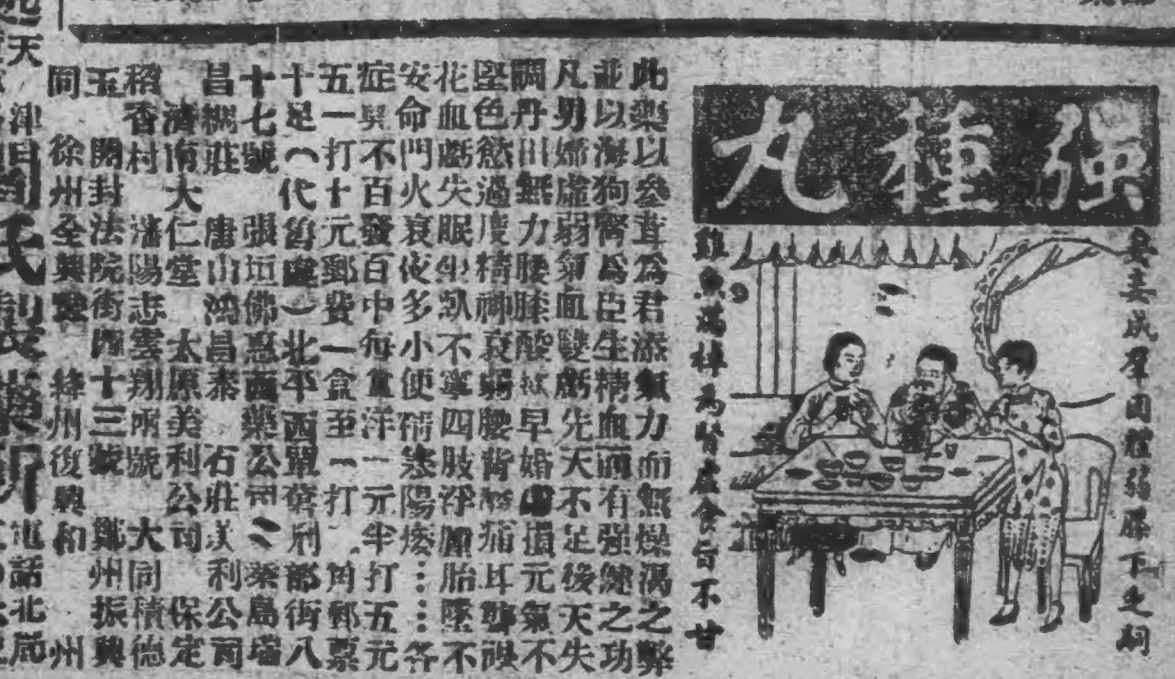 强種丸
妾成羣因體弱膝下乏嗣
滿桌為腎虛食旨不甘
此藥以參茸為君添氣力而無燥渴之弊
並以海狗腎為臣生精血而有強健之功
凡男婦虛弱氣血雙虧先天不足後天失
調丹田無力腰膝酸早婚損元氣不
堅色慾過度精神衰弱腰背痛耳聾
花血虧失眠坐臥不寧四肢浮腫胎墜不
安命門火衰夜多小便精寒陽痿……各
症異不百發百中每盒洋一元半打五元
五一打十元郵費一盒至一打角郵票
十足(代售處)北平西單舊刑部街八
十七號 張垣佛惠西藥公司 秦島瑞
昌棧莊 唐山鴻昌泰 石莊美利公司
濟南大仁堂 太原美利公司 保定
稻香村 瀋陽志雲翔 大同積德
玉 開封法院街十三號 鄭州振興
同 徐州全興 絳州復興和 州
天津日
氏製藥所
電話北局